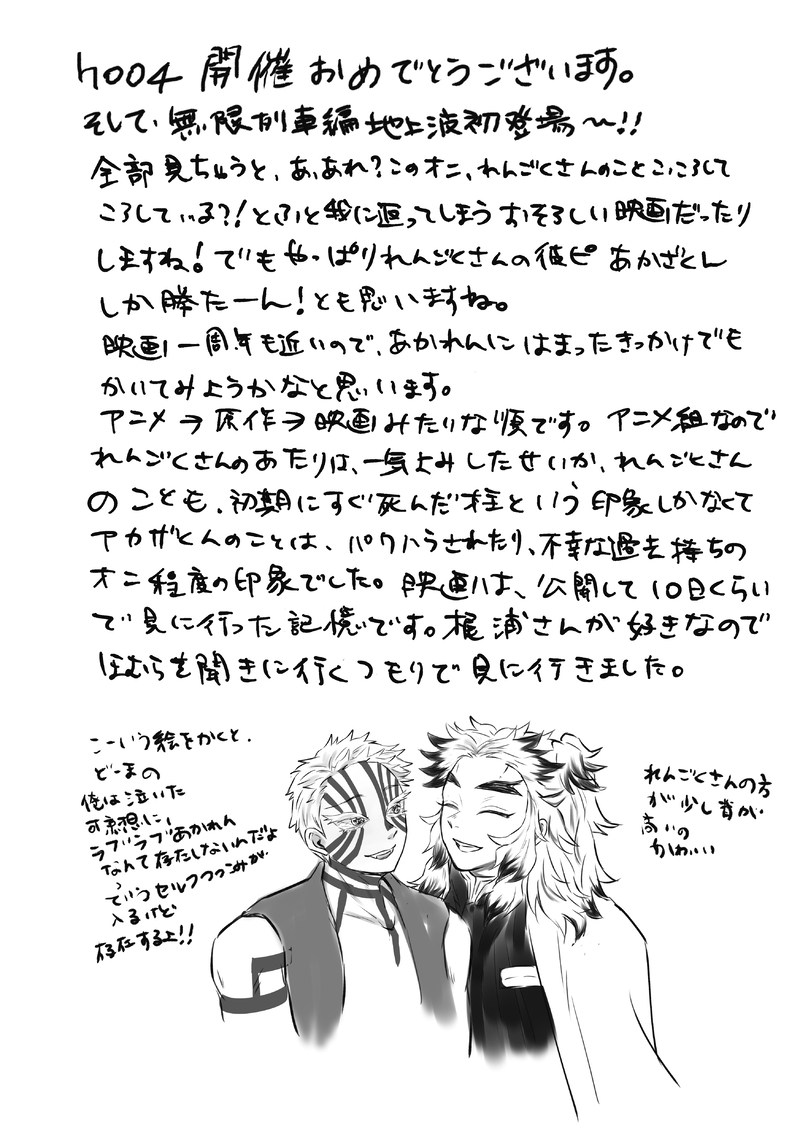 h004 開催おめでとうございます。
そして、無限列車編地上波初登場〜!!
全部見ちゃうと、あ、あれ?このオニ、れんごくさんのことこ、ころして
ころしている?!とふと我に返ってしまうおそろしい映画だったり
しますね!でもやっぱりれんごくさんの彼ピあかざくん
しか勝たーん!とも思いますね。
映画一周年も近いので、あかれんにはまったきっかけでも
かいてみようかなと思います。
アニメ→原作→映画みたいな順です。アニメ組なので
れんごくさんのあたりは、一気よみしたせいか、れんごくさん
のことも、初期にすぐ死んだ柱という印象しかなくて
アカザくんのことは、パワハラされたり、不幸な過去持ちの
オニ程度の印象でした。映画は、公開して10日くらい
で見に行った記憶です。梶浦さんが好きなので
ほむらを聞きに行くつもりで見に行きました。
こーいう絵をかくと、
どーまの
俺は泣いた
可哀想に
ラブラブあかれん
なんて存在しないんだよ
っていうセルフつっこみが
入るけど
存在するよ!!
れんごくさんの方
が少し背が
高いの
かわいい